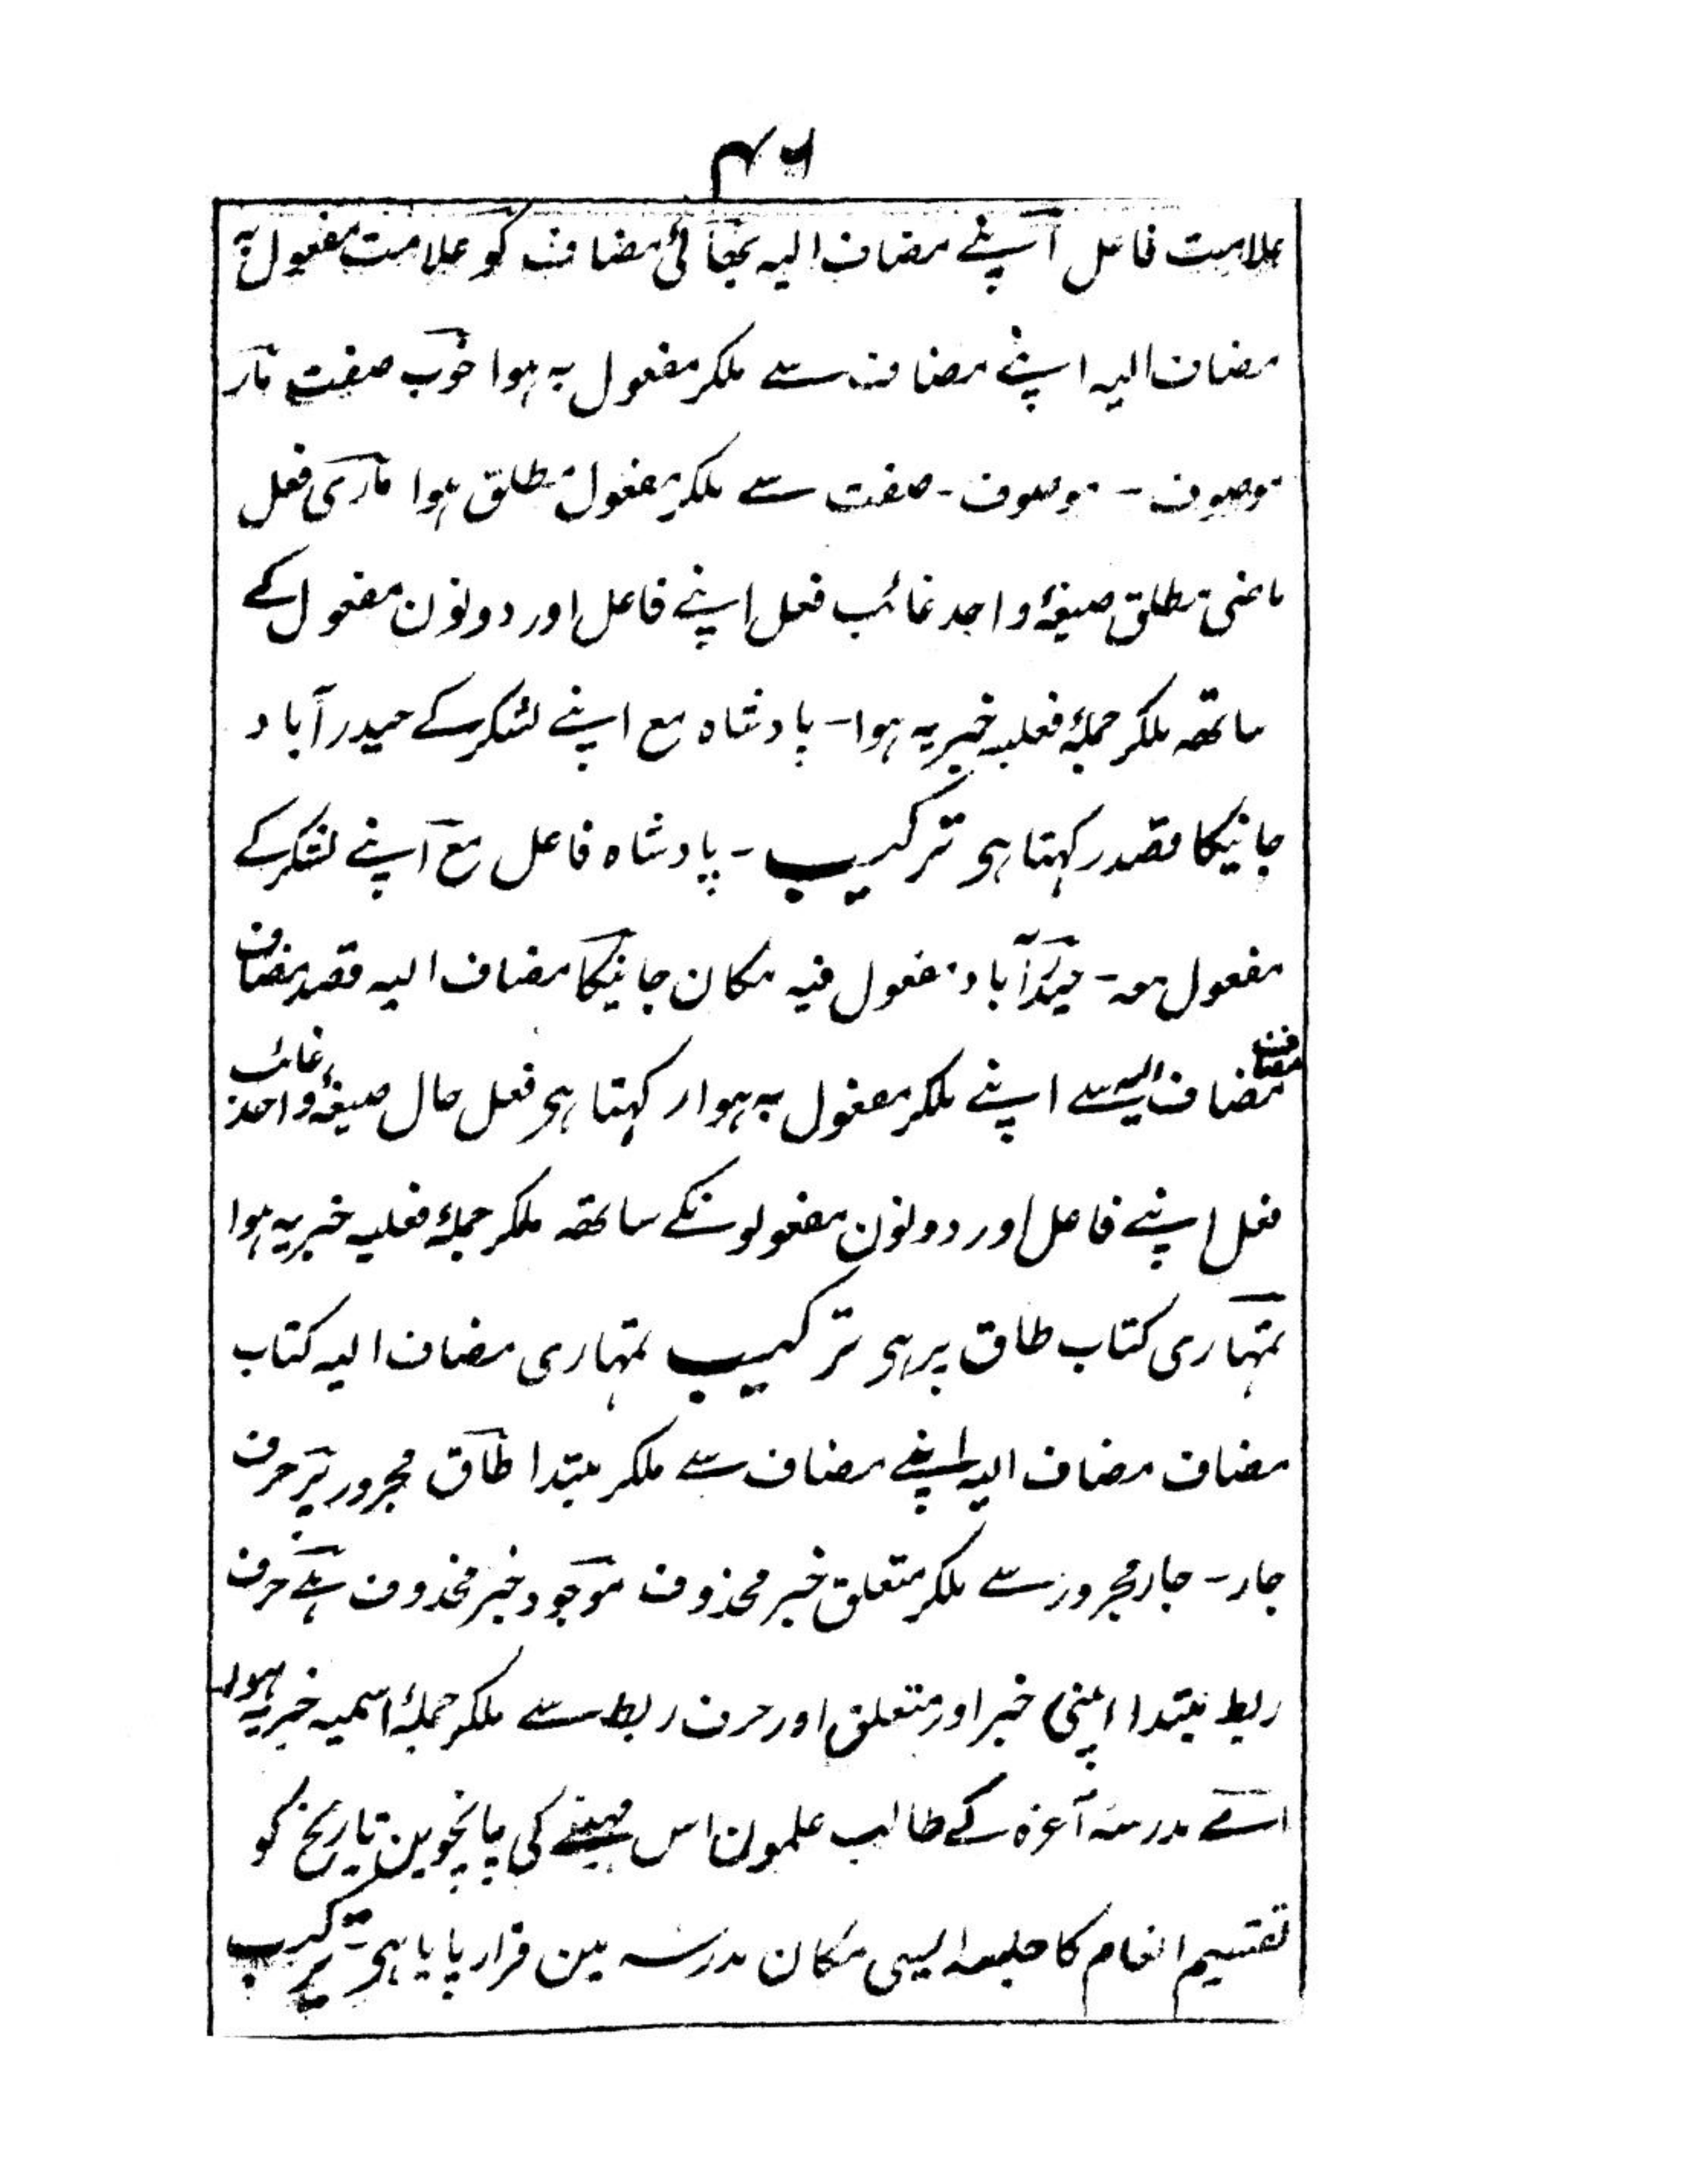 ۴۶
علامت فاعل اپنے مضاف الیہ بھائی مضاف کو علامت مفعول بہ
مضاف الیہ اپنے مضاف سے ملکر مفعول بہ ہوا خوب صفت مار
موصوف - موصوف - صفت سے ملکر مفعول مطلق ہوا ماری فعل
ماضی مطلق صیغۂ واحد غائب فعل اپنے فاعل اور دونون مفعول کے
ساتھہ ملکر جملۂ فعلیہ خبریہ ہوا - بادشاہ مع اپنے لشکر کے حیدرآباد
جانیکا قصد رکہتا ہی ترکیب - پادشاہ فاعل مع اپنے لشکر کے
مفعول معہ - حیدرآباد مفعول فیہ مکان جانیکا مضاف الیہ قصد مضاف
مضاف الیہ سے اپنے مضاف ملکر مفعول بہ ہوا رکہتا ہی فعل حال صیغۂ واحد غائب
فعل اپنے فاعل اور دونون مفعولونکے ساتھہ ملکر جملۂ فعلیہ خبریہ ہوا
تمہاری کتاب طاق پر ہی ترکیب تمہاری مضاف الیہ کتاب
مضاف مضاف الیہ اپنے مضاف سے ملکر مبتدا طاق مجرور پر حرف
جار - جار مجرور سے ملکر متعلق خبر محذوف موجود خبر محذوف ہے حرف
ربط مبتدا اپنی خبر اور متعلق اور حرف ربط سے ملکر جملۂ اسمیہ خبریہ ہوا -
مدرسہ اعزہ کے طالب علمون اس مہینے کی پانچوین تاریخ کو
تقسیم انعام کا جلسہ اسی مکان مدرسہ مین قرار پایا ہی - ترکیب